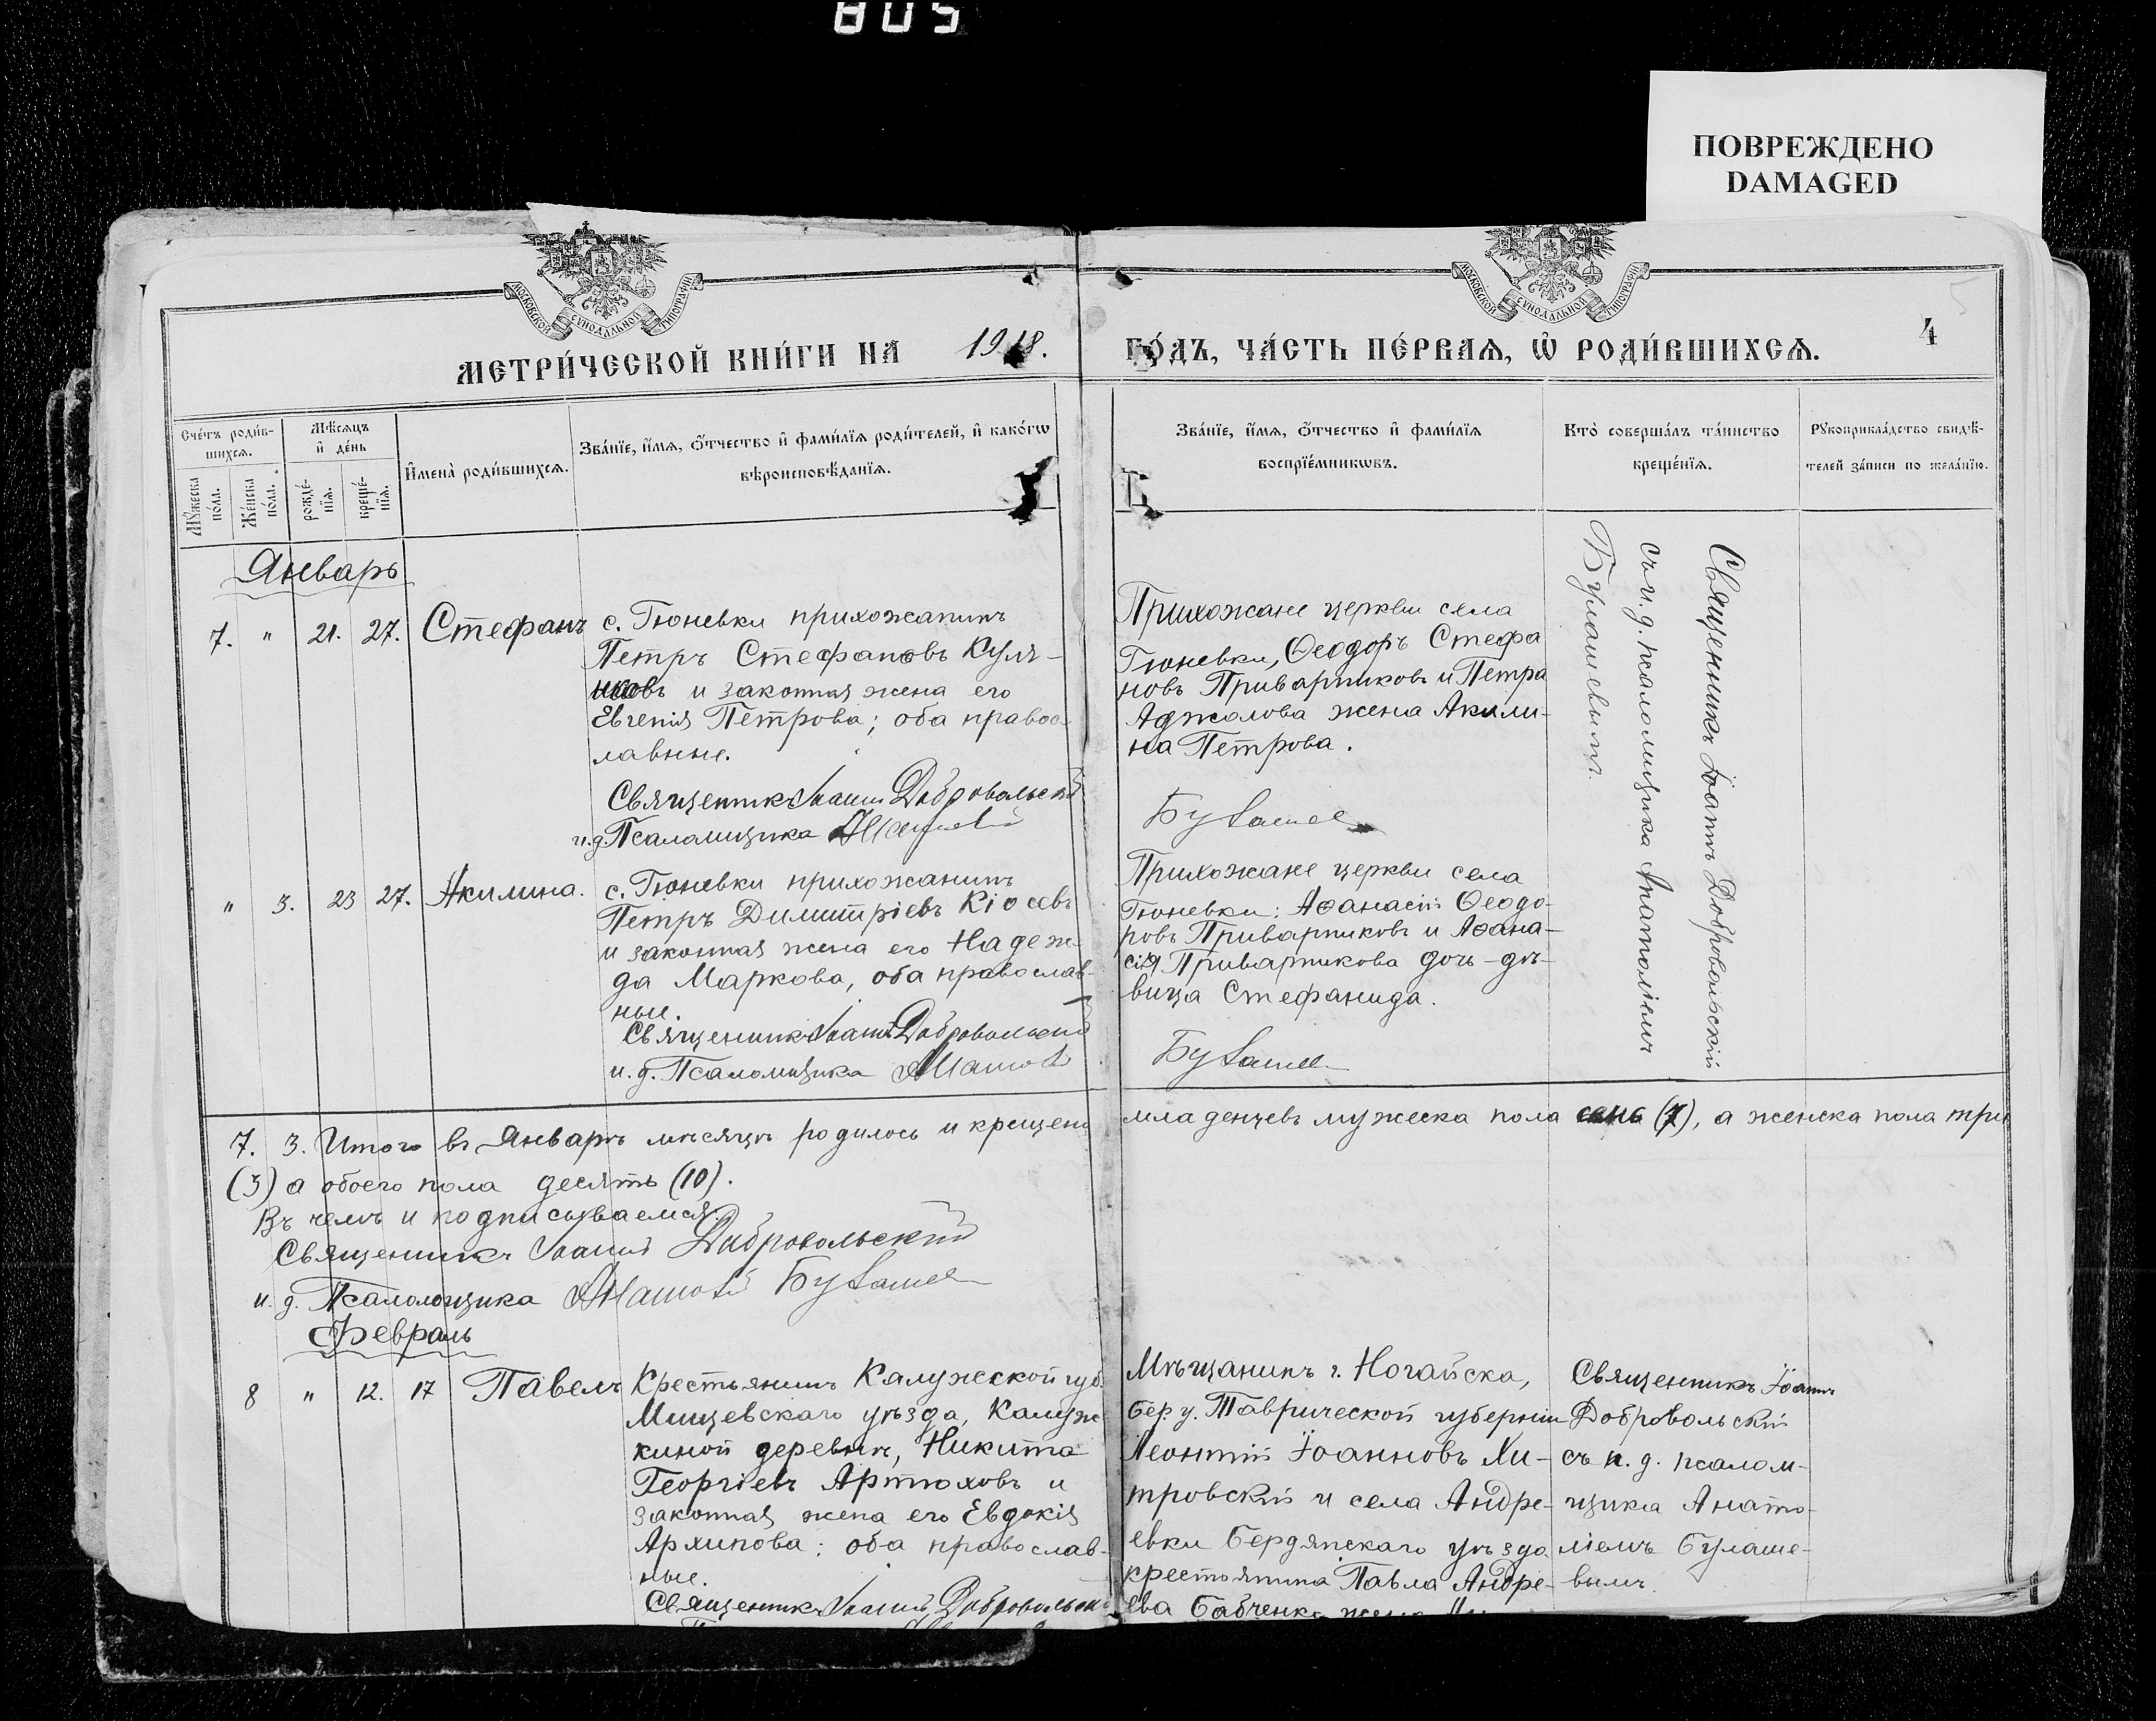 805
ПОВРЕЖДЕНО
DAMAGED
МОСКОВСКОЙ СУНОДАЛЬНОЙ ТИПОГРАФІИ
МОСКОВСКОЙ СУНОДАЛЬНОЙ ТИПОГРАФІИ
4
МЕТРИ́ЧЕСКОЙ КНИ́ГИ НА 1918. ГО́ДЪ, ЧА́СТЬ ПЕ́РВАѦ, Ѡ҆ РОДИ́ВШИХСѦ.
Сче́тъ роди́в-
шихсѧ.
Мꙋ́жеска по́ла.
Же́нска по́ла.
Мѣ́сѧцъ
и҆ де́нь
рожде́-
нїѧ.
креще́-
нїѧ.
И҆мена̀ роди́вшихсѧ.
Зва́нїе, и҆́мѧ, ѻ҆́тчество и҆ фами́лїѧ роди́телей, и҆ како́гѡ
вѣроисповѣ́данїѧ.
Зва́нїе, и҆́мѧ, ѻ҆́тчество и҆ фами́лїѧ
воспрїе́мникѡвъ.
Кто̀ соверша́лъ та́инство
креще́нїѧ.
Рꙋкоприкла́дство свидѣ́-
телей за́писи по жела́нїю.
Январь
7. " 21. 27. Стефанъ
с. Гюневки прихожанинъ
Петръ Стефановъ
и законная жена его
Евгенія Петрова; оба правос-
лавные.
Священникъ Іоаннъ Добровольскій
и.д. Псаломщика
Прихожане церкви села
Гюневки, Ѳеодоръ Стефа
новъ Приварниковъ и Петра
Аджолова жена Акили-
на Петрова.
Булашев
Священникъ Іоаннъ Добровольскій
съ и. д. псаломщика Анатоліемъ
Булашевымъ.
" 3. 23 27. Акилина.
с. Гюневки прихожанинъ
Петръ Димитріевъ Кіосевъ
и законная жена его Надеж-
да Маркова, оба православ-
ные.
Священникъ Іоаннъ Добровольскій
и. д. Псаломщика Анатолій
Прихожане церкви села
Гюневки: Аѳанасій Ѳеодо-
ровъ Приварниковъ и Аѳана-
сія Приварникова дочь-дѣ-
вица Стефанида.
Булашев
7. 3. Итого въ Январѣ мѣсяцѣ родилось и крещено младенцевъ мужеска пола семь (7), а женска пола три
(3) а обоего пола десять (10).
Въ чемъ и подписываемся.
Священникъ Іоаннъ Добровольскій
и. д. Псаломщика Анатолій Булашев
Февраль
8 " 12. 17 Павелъ
Крестьянинъ Калужской губ.
Мищевскаго уѣзда,
киной деревни, Никита
Георгіевъ Артюховъ и
законная жена его Евдокія
Архипова: оба православ-
ные.
Священникъ Іоаннъ Добровольскій
Мѣщанинъ г. Ногайска,
Бер. у. Таврической губерніи
Леонтій Іоанновъ
тровскій и села Андре-
евки Бердянскаго уѣзда
крестьянина Павла Андре-
ева Бабченко жена
Священникъ Іоаннъ
Добровольскій
съ и. д. псалом-
щика Анато-
ліемъ Булаше-
вымъ.